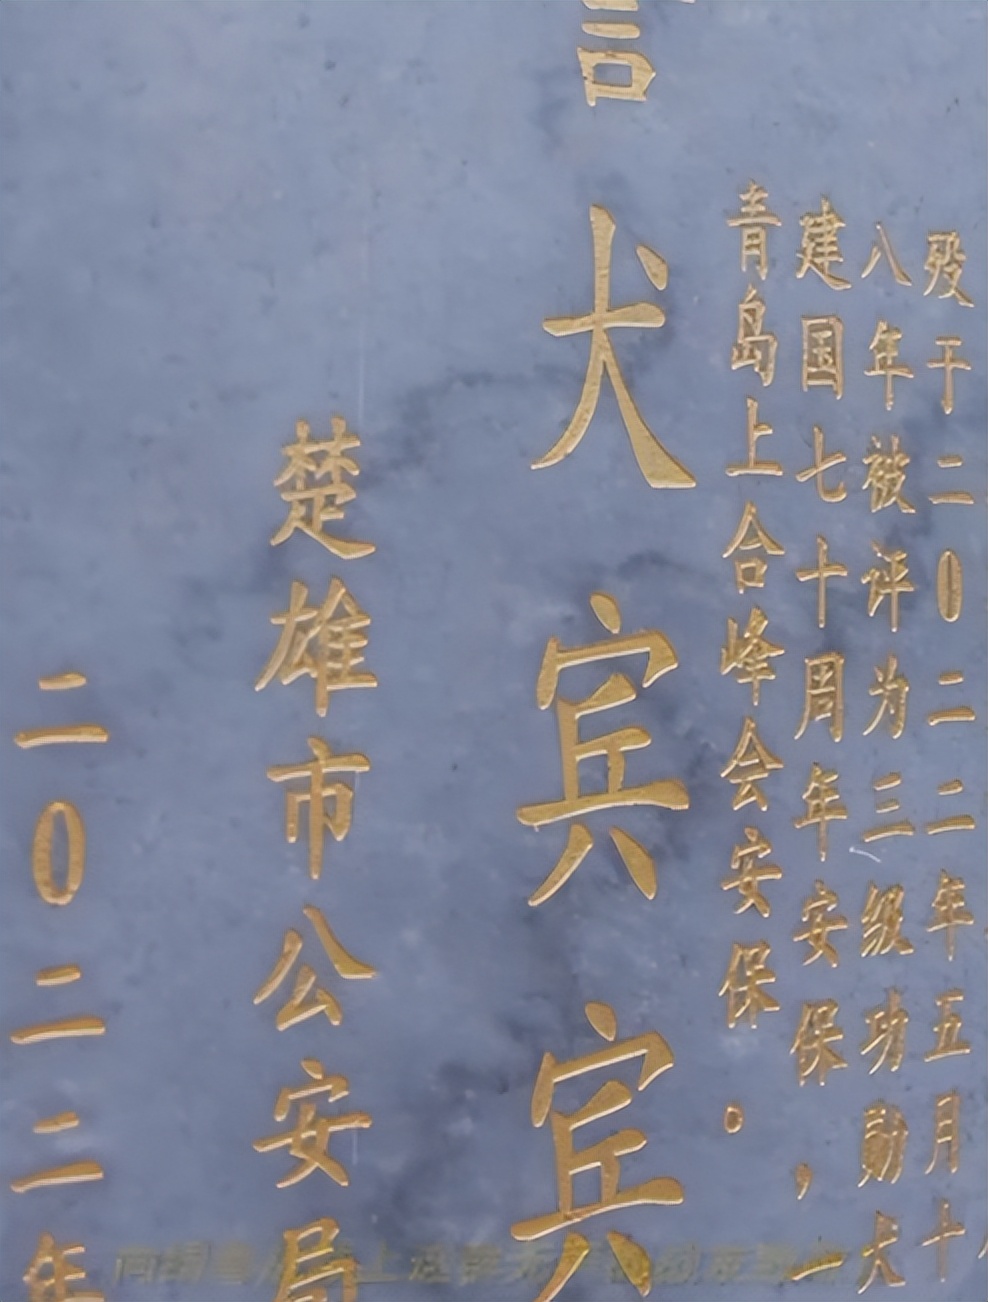 殁于二0二二年五月十
八年被评为三级功勋犬
建国七十周年安保，一
青岛上合峰会安保。
犬宾宾
楚雄市公安局
二0二二年